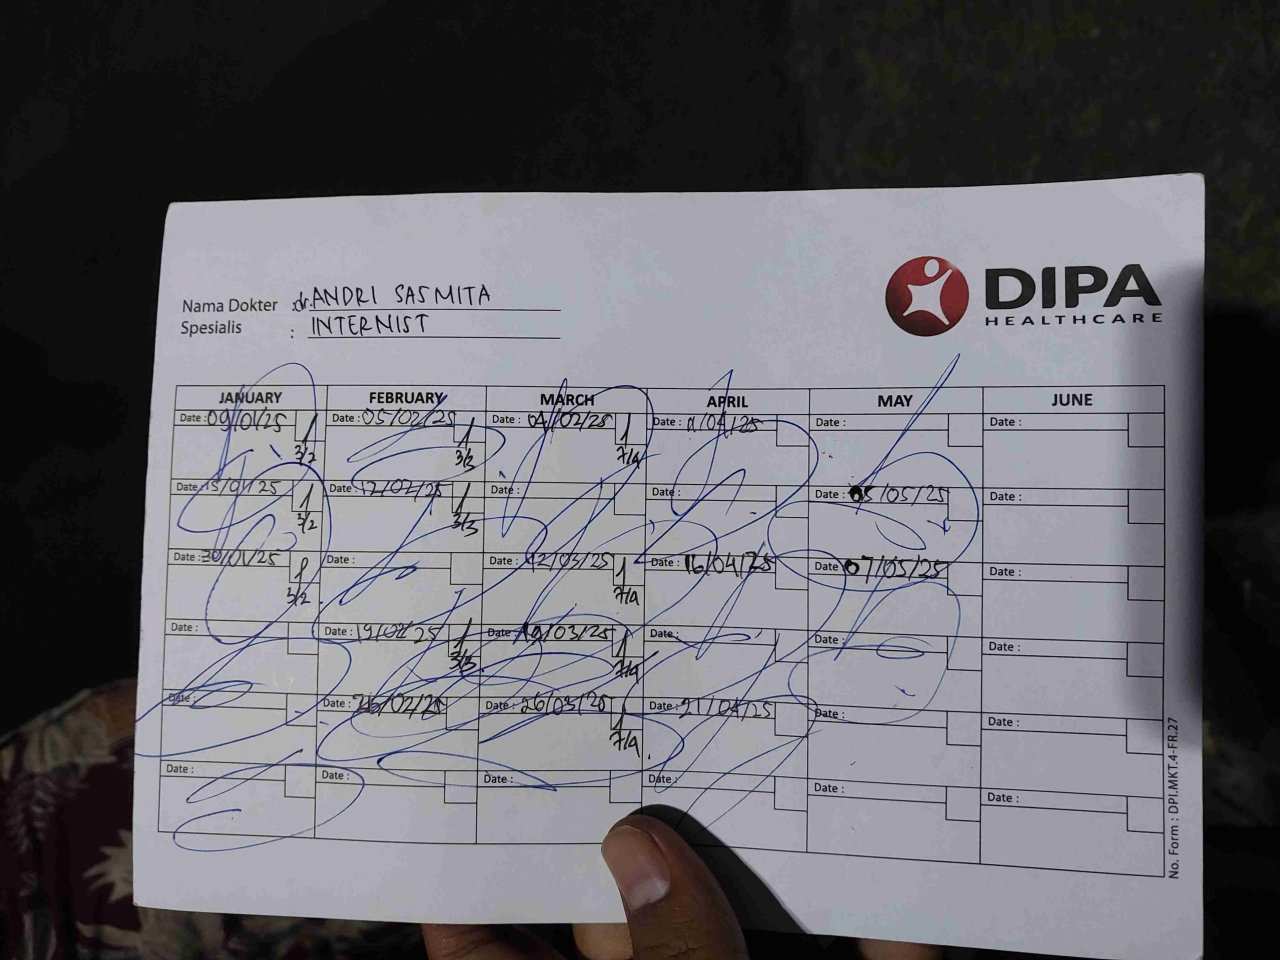 Nama Dokter : dr. ANDRI SASMITA
Spesialis : INTERNIST
DIPA
HEALTHCARE
JANUARY FEBRUARY MARCH APRIL MAY JUNE
Date : 09/01/25 Date : 05/02/25 Date : 04/02/25 Date : 11/04/25 Date : Date :
3/2 3/3 7/4
Date : 15/01/25 Date : 12/02/25 Date : Date : Date : 05/05/25 Date :
3/2 3/3
Date : 30/01/25 Date : Date : 12/03/25 Date : 16/04/25 Date : 07/05/25 Date :
3/2 7/4
Date : Date : 19/02/25 Date : 19/03/25 Date : Date : Date :
3/3 7/4
Date : Date : 26/02/25 Date : 26/03/25 Date : 21/04/25 Date : Date :
7/4
Date : Date : Date : Date : Date : Date :
No. Form : DPI.MKT.4-FR.27